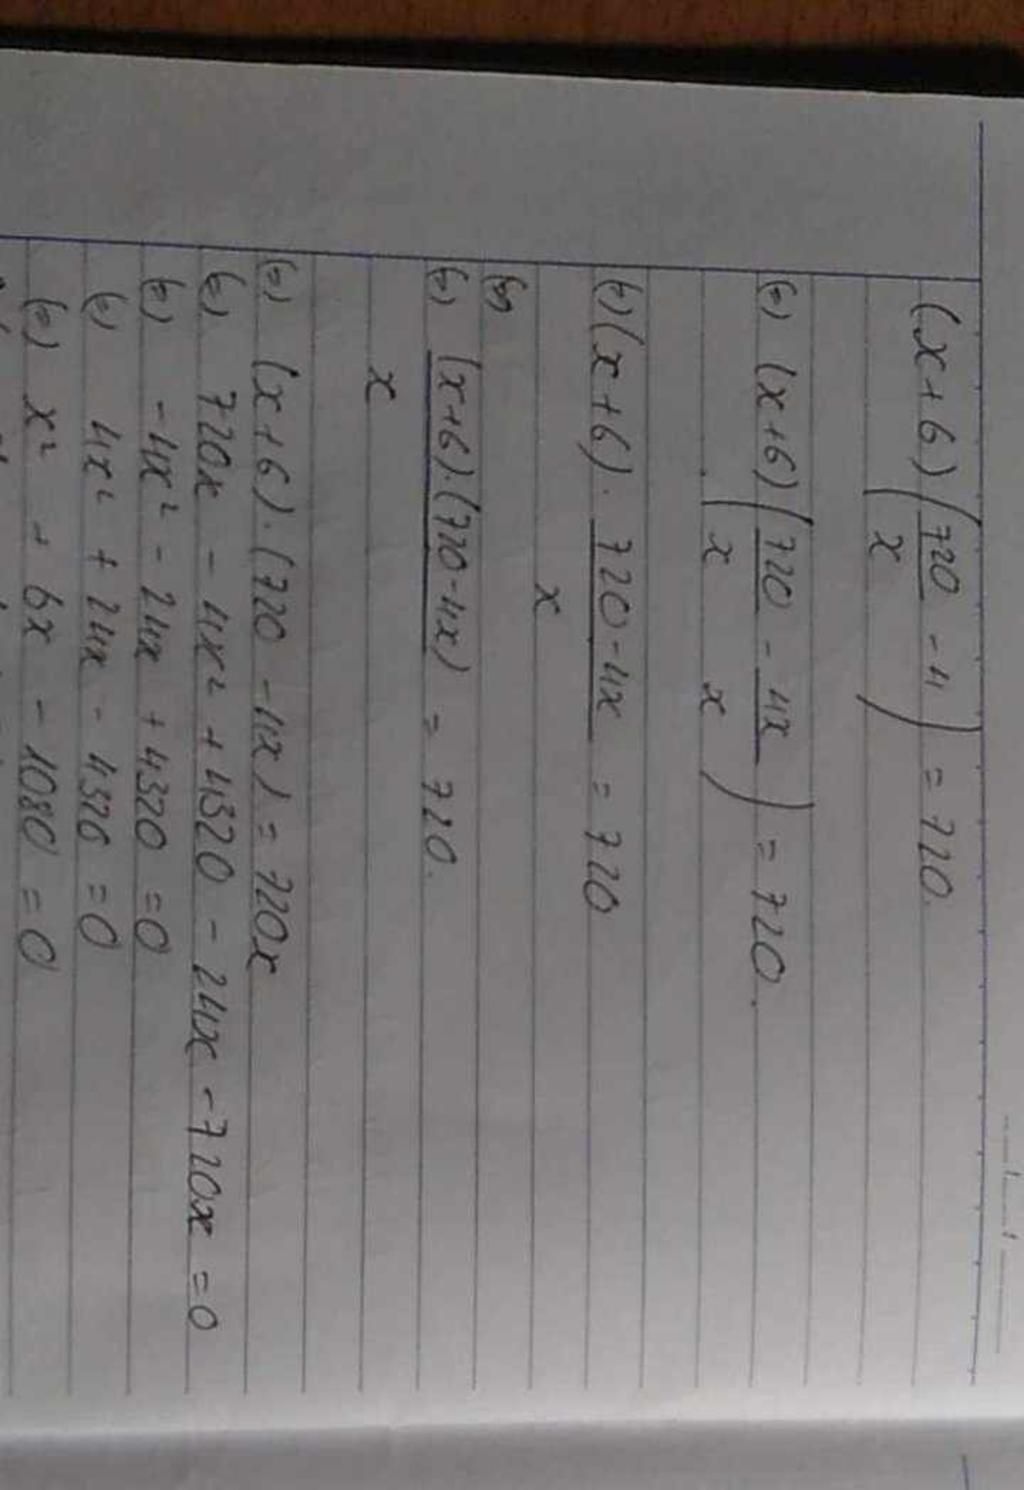 (x+6)(720/x - 4) = 720.
(=) (x+6)(720/x - 4x/x) = 720.
(=) (x+6) . 720-4x/x = 720
(=)
(=) (x+6).(720-4x)/x = 720.
(=) (x+6).(720-4x) = 720x
(=) 720x - 4x² + 4320 - 24x - 720x = 0
(=) -4x² - 24x + 4320 = 0
(=) 4x² + 24x - 4320 = 0
(=) x² + 6x - 1080 = 0